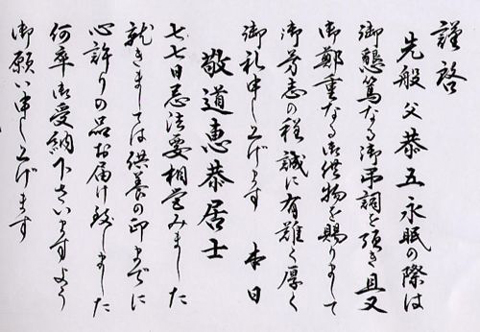 謹啓
先般 父 恭五 永眠の際は
御懇篤なる御弔詞を頂き 且又
御鄭重なる御供物を賜りまして
御芳志の程 誠に有難く厚く
御礼申し上げます 本日
敬道恵恭居士
七七日忌法要相営みました
就きましては供養の印までに
心許りの品お届け致しました
何卒御受納下さいますよう
御願い申し上げます